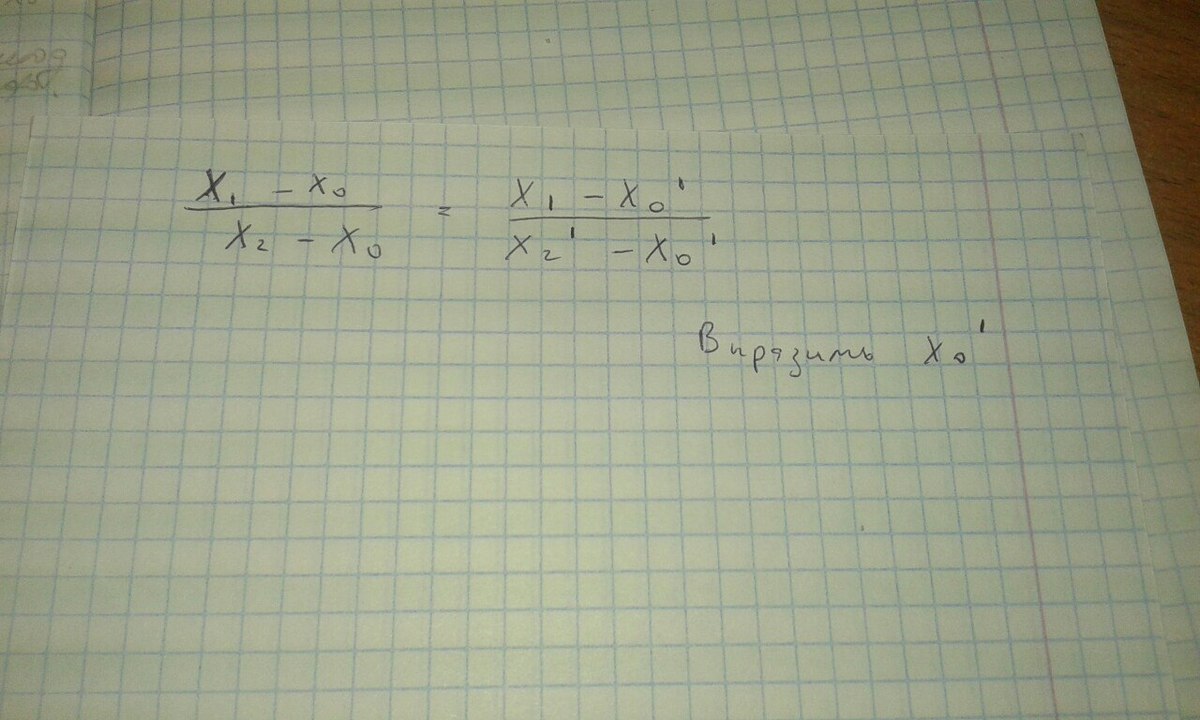 X₁ - X₀ / X₂ - X₀ = X₁ - X₀' / X₂' - X₀'
Выразить X₀'